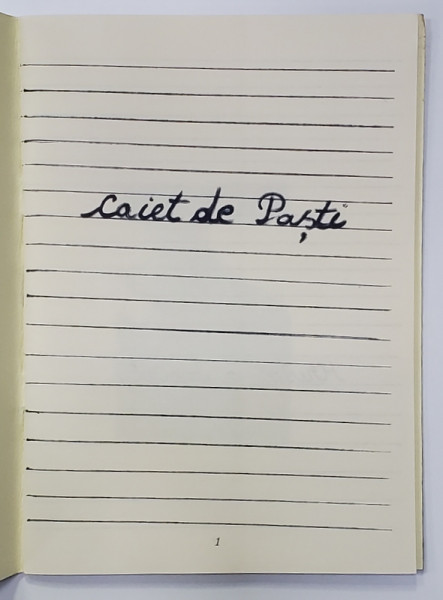 caiet de Paști
1